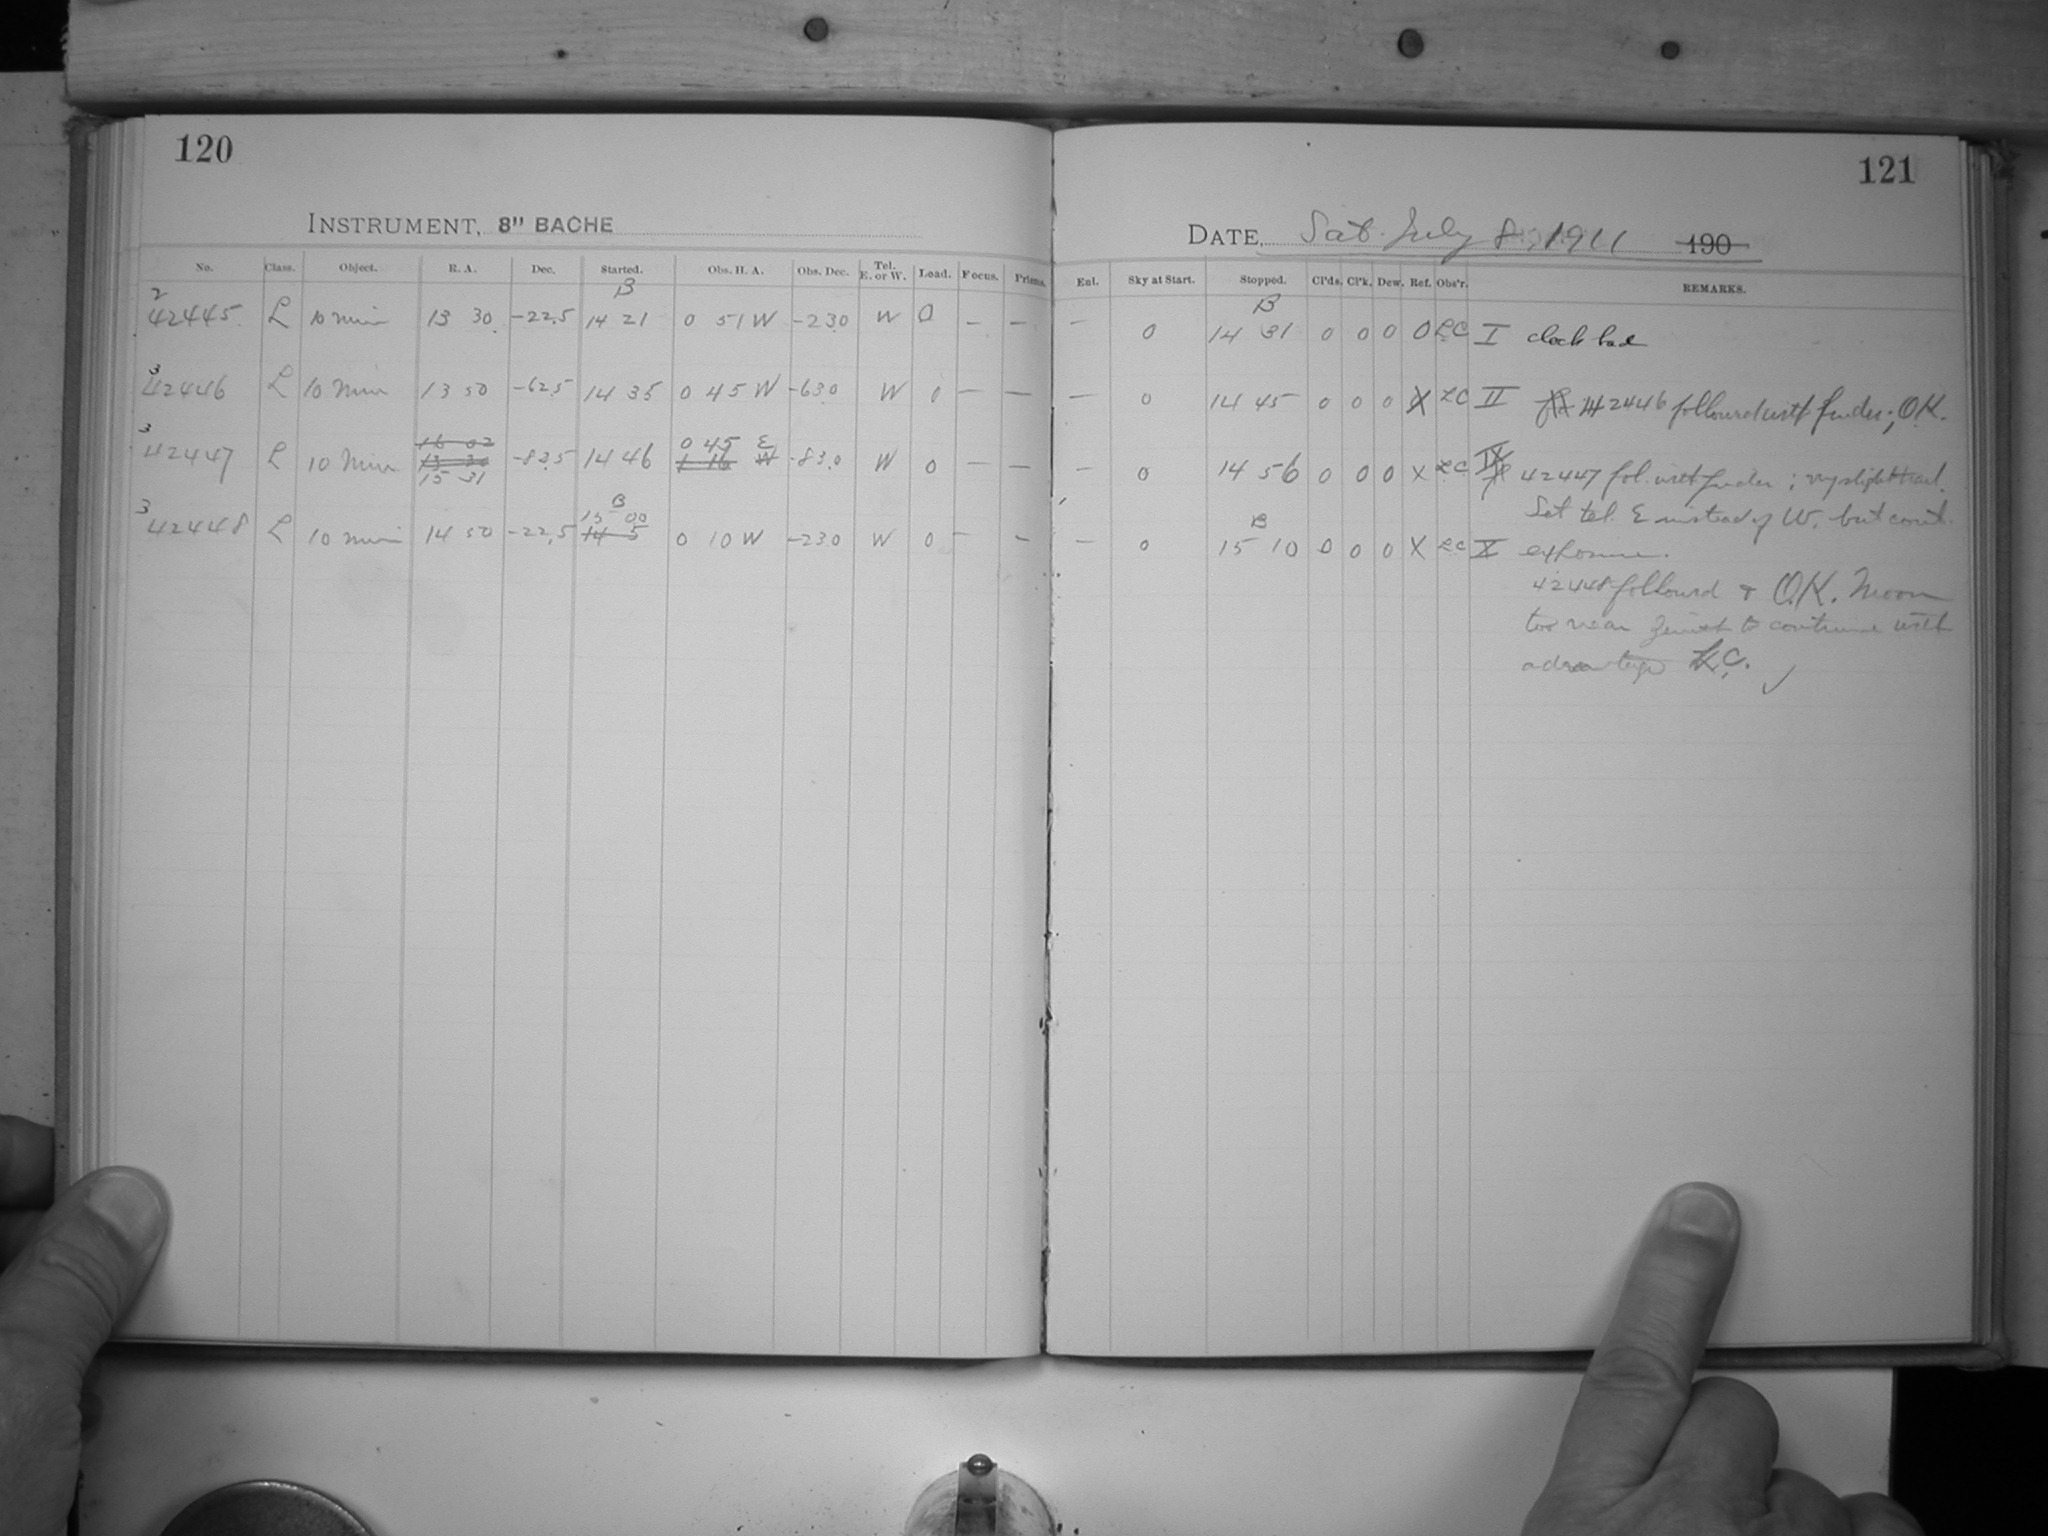 120
121
INSTRUMENT, 8" BACHE
DATE, Sat. July 8, 1911 190
No. Class. Object. R. A. Dec. Started. Obs. H. A. Obs. Dec. Tel. E. or W. Load. Focus. Prisms. Enl. Sky at Start. Stopped. Cl'ds. Cl'k. Dew. Ref. Obs'r. REMARKS.
B B
2
42445 L 10 min 13 30 -22.5 14 21 0 51 W -23.0 W 0 — — — 0 14 31 0 0 0 0 LC I clock bad
3
42446 L 10 Min 13 50 -62.5 14 35 0 45 W -63.0 W 0 — — — 0 14 45 0 0 0 X LC II 42446 followed with finder; O.K.
3
16 02 0 45 E
42447 L 10 Min 13 30 -82.5 14 46 1 16 W -83.0 W 0 — — — 0 14 56 0 0 0 X LC IX 42447 fol. with finder; very slight trail.
15 31
Set tel. E instead of W. but cont.
3
B B
15 00
42448 L 10 min 14 50 -22.5 14 5 0 10 W -23.0 W 0 — — — 0 15 10 0 0 0 X LC X exposure.
42448 followed & O.K. Moon
too near zenith to continue with
advantage L.C. ✓